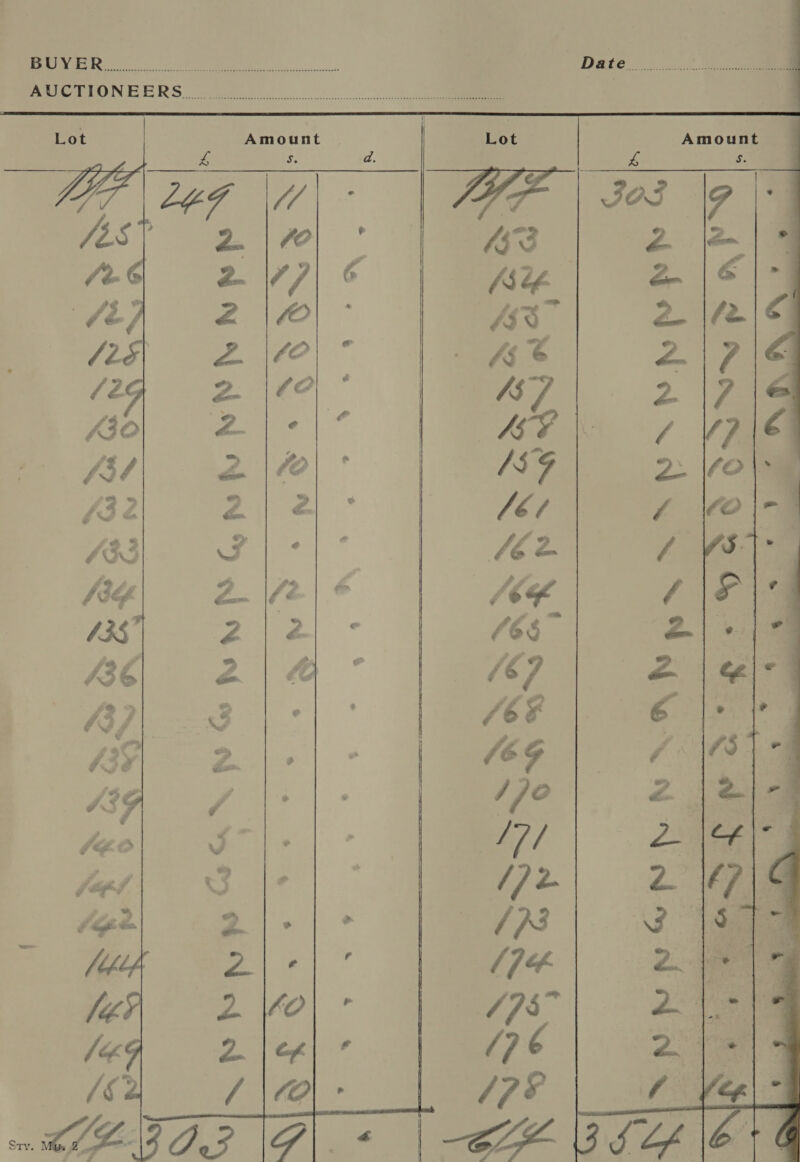 BUYER Date
AUCTIONEERS
Lot Amount
£ s. d.
B/F 249 11 .
125 2 10 .
126 2 17 6
127 2 10 .
128 2 10 .
129 2 10 .
130 2 . .
131 2 10 .
132 2 2 .
133 3 . .
134 2 12 6
135 2 2 .
136 2 10 .
137 3 . .
138 2 . .
139 1 . .
140 5 . .
141 3 . .
142 2 . .
144 2 . .
148 2 10 .
149 2 4 .
152 1 10 .
C/F 303 9 .
Lot Amount
£ s.
B/F 303 9 .
153 2 2 .
154 2 6 .
155 2 12 6
156 2 7 6
157 2 7 6
158 1 17 6
159 2 10 .
161 1 10 -
162 1 15 .
164 1 8 .
165 2 . .
167 2 4 .
168 6 . .
169 1 15 -
170 2 2 -
171 2 4 -
172 2 17 6
173 3 5 -
174 2 . .
175 2 . .
176 2 . .
178 1 14 -
C/F 354 6 . 6
Sty.